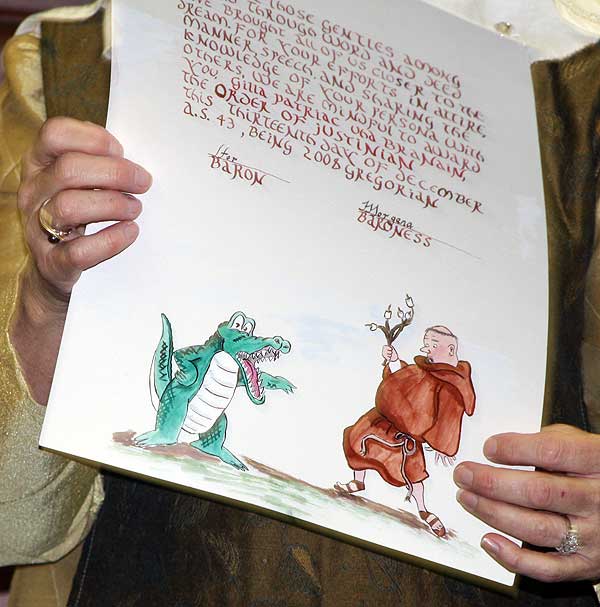 THOSE GENTLES AMONG
THROUGH WORD AND DEED
BROUGHT ALL OF US CLOSER TO THE
DREAM FOR YOUR EFFORTS IN ATTIRE,
MANNER, SPEECH, AND SHARING THE
KNOWLEDGE OF YOUR PERSONA WITH
OTHERS, WE ARE MINDFUL TO AWARD
YOU, GILLA PATRIAC UHA BRENAIN,
THE ORDER OF JUSTINIAN
THIS THIRTEENTH DAY OF DECEMBER
A.S. 43, BEING 2008 GREGORIAN
BARON
Morgana
BARONESS